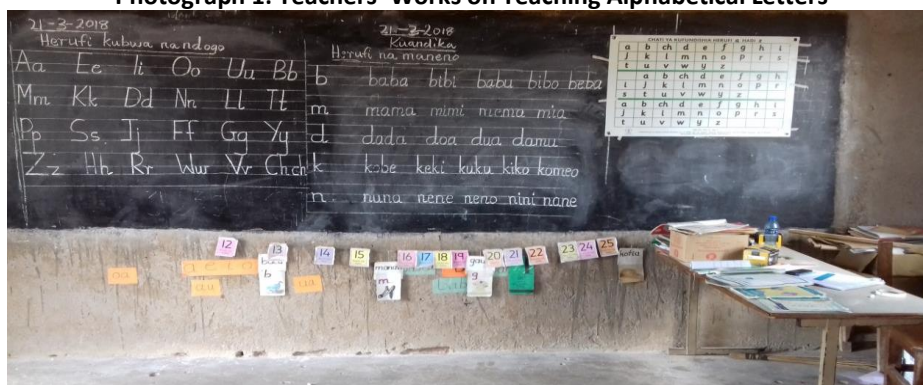 Photograph 1: Teachers' Works on Teaching Alphabetical Letters
21-3-2018
Herufi kubwa na ndogo
Aa Ee Ii Oo Uu Bb
Mm Kk Dd Nn Ll Tt
Pp Ss Jj Ff Gg Yy
Zz Hh Rr Ww Vv Chch
21-3-2018
Kuandika
Herufi na maneno
b baba bibi babu bibo beba
m mama mimi mia
d dada doa dua damu
k kobe keki kuku kiko komeo
n nuna nene neno nini nane
CHATI YA KUFUNDISHIA HERUFI
a b ch d e f g h i
j k l m n o p r s
t u v w y z
a b ch d e f g h
i j k l m n o p r
s t u v w y z
a b ch d e f g h i
j k l m n o p r s
t u v w y z
12 13 14 15 16 17 18 19 20 21 22 23 24 25
b
m
g
a e i o
au